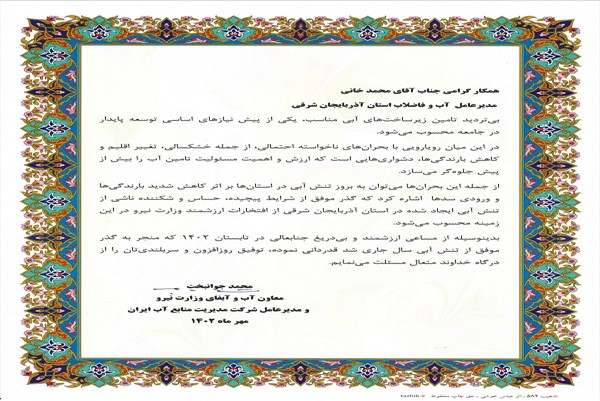 همکار گرامی جناب آقای محمد خانی
مدیرعامل آب و فاضلاب استان آذربایجان شرقی
بی‌تردید تامین زیرساخت‌های آبی مناسب، یکی از پیش نیازهای اساسی توسعه پایدار
در جامعه محسوب می‌شود.
در این میان رویارویی با بحران‌های ناخواسته احتمالی، از جمله خشکسالی، تغییر اقلیم و
کاهش بارندگی‌ها، دشواری‌هایی است که ارزش و اهمیت مسئولیت تامین آب را بیش از
پیش جلوه‌گر می‌سازد.
از جمله این بحران‌ها می‌توان به بروز تنش آبی در استان‌ها بر اثر کاهش شدید بارندگی‌ها
و ورودی سدها اشاره کرد که گذر موفق از شرایط پیچیده، حساس و شکننده ناشی از
تنش آبی ایجاد شده در استان آذربایجان شرقی از افتخارات ارزشمند وزارت نیرو در این
زمینه محسوب می‌شود.
بدینوسیله از مساعی ارزشمند و بی‌دریغ جنابعالی در تابستان ۱۴۰۲ که منجر به گذر
موفق از تنش آبی سال جاری شد قدردانی نموده، توفیق روزافزون و سربلندی‌تان را از
درگاه خداوند متعال مسئلت می‌نمایم.
محمد جوانبخت
معاون آب و آبفای وزارت نیرو
و مدیرعامل شرکت مدیریت منابع آب ایران
مهر ماه ۱۴۰۲
تذهیب ۵۸۲ ـ اثر عباس ـ حق چاپ محفوظ tazhib.ir